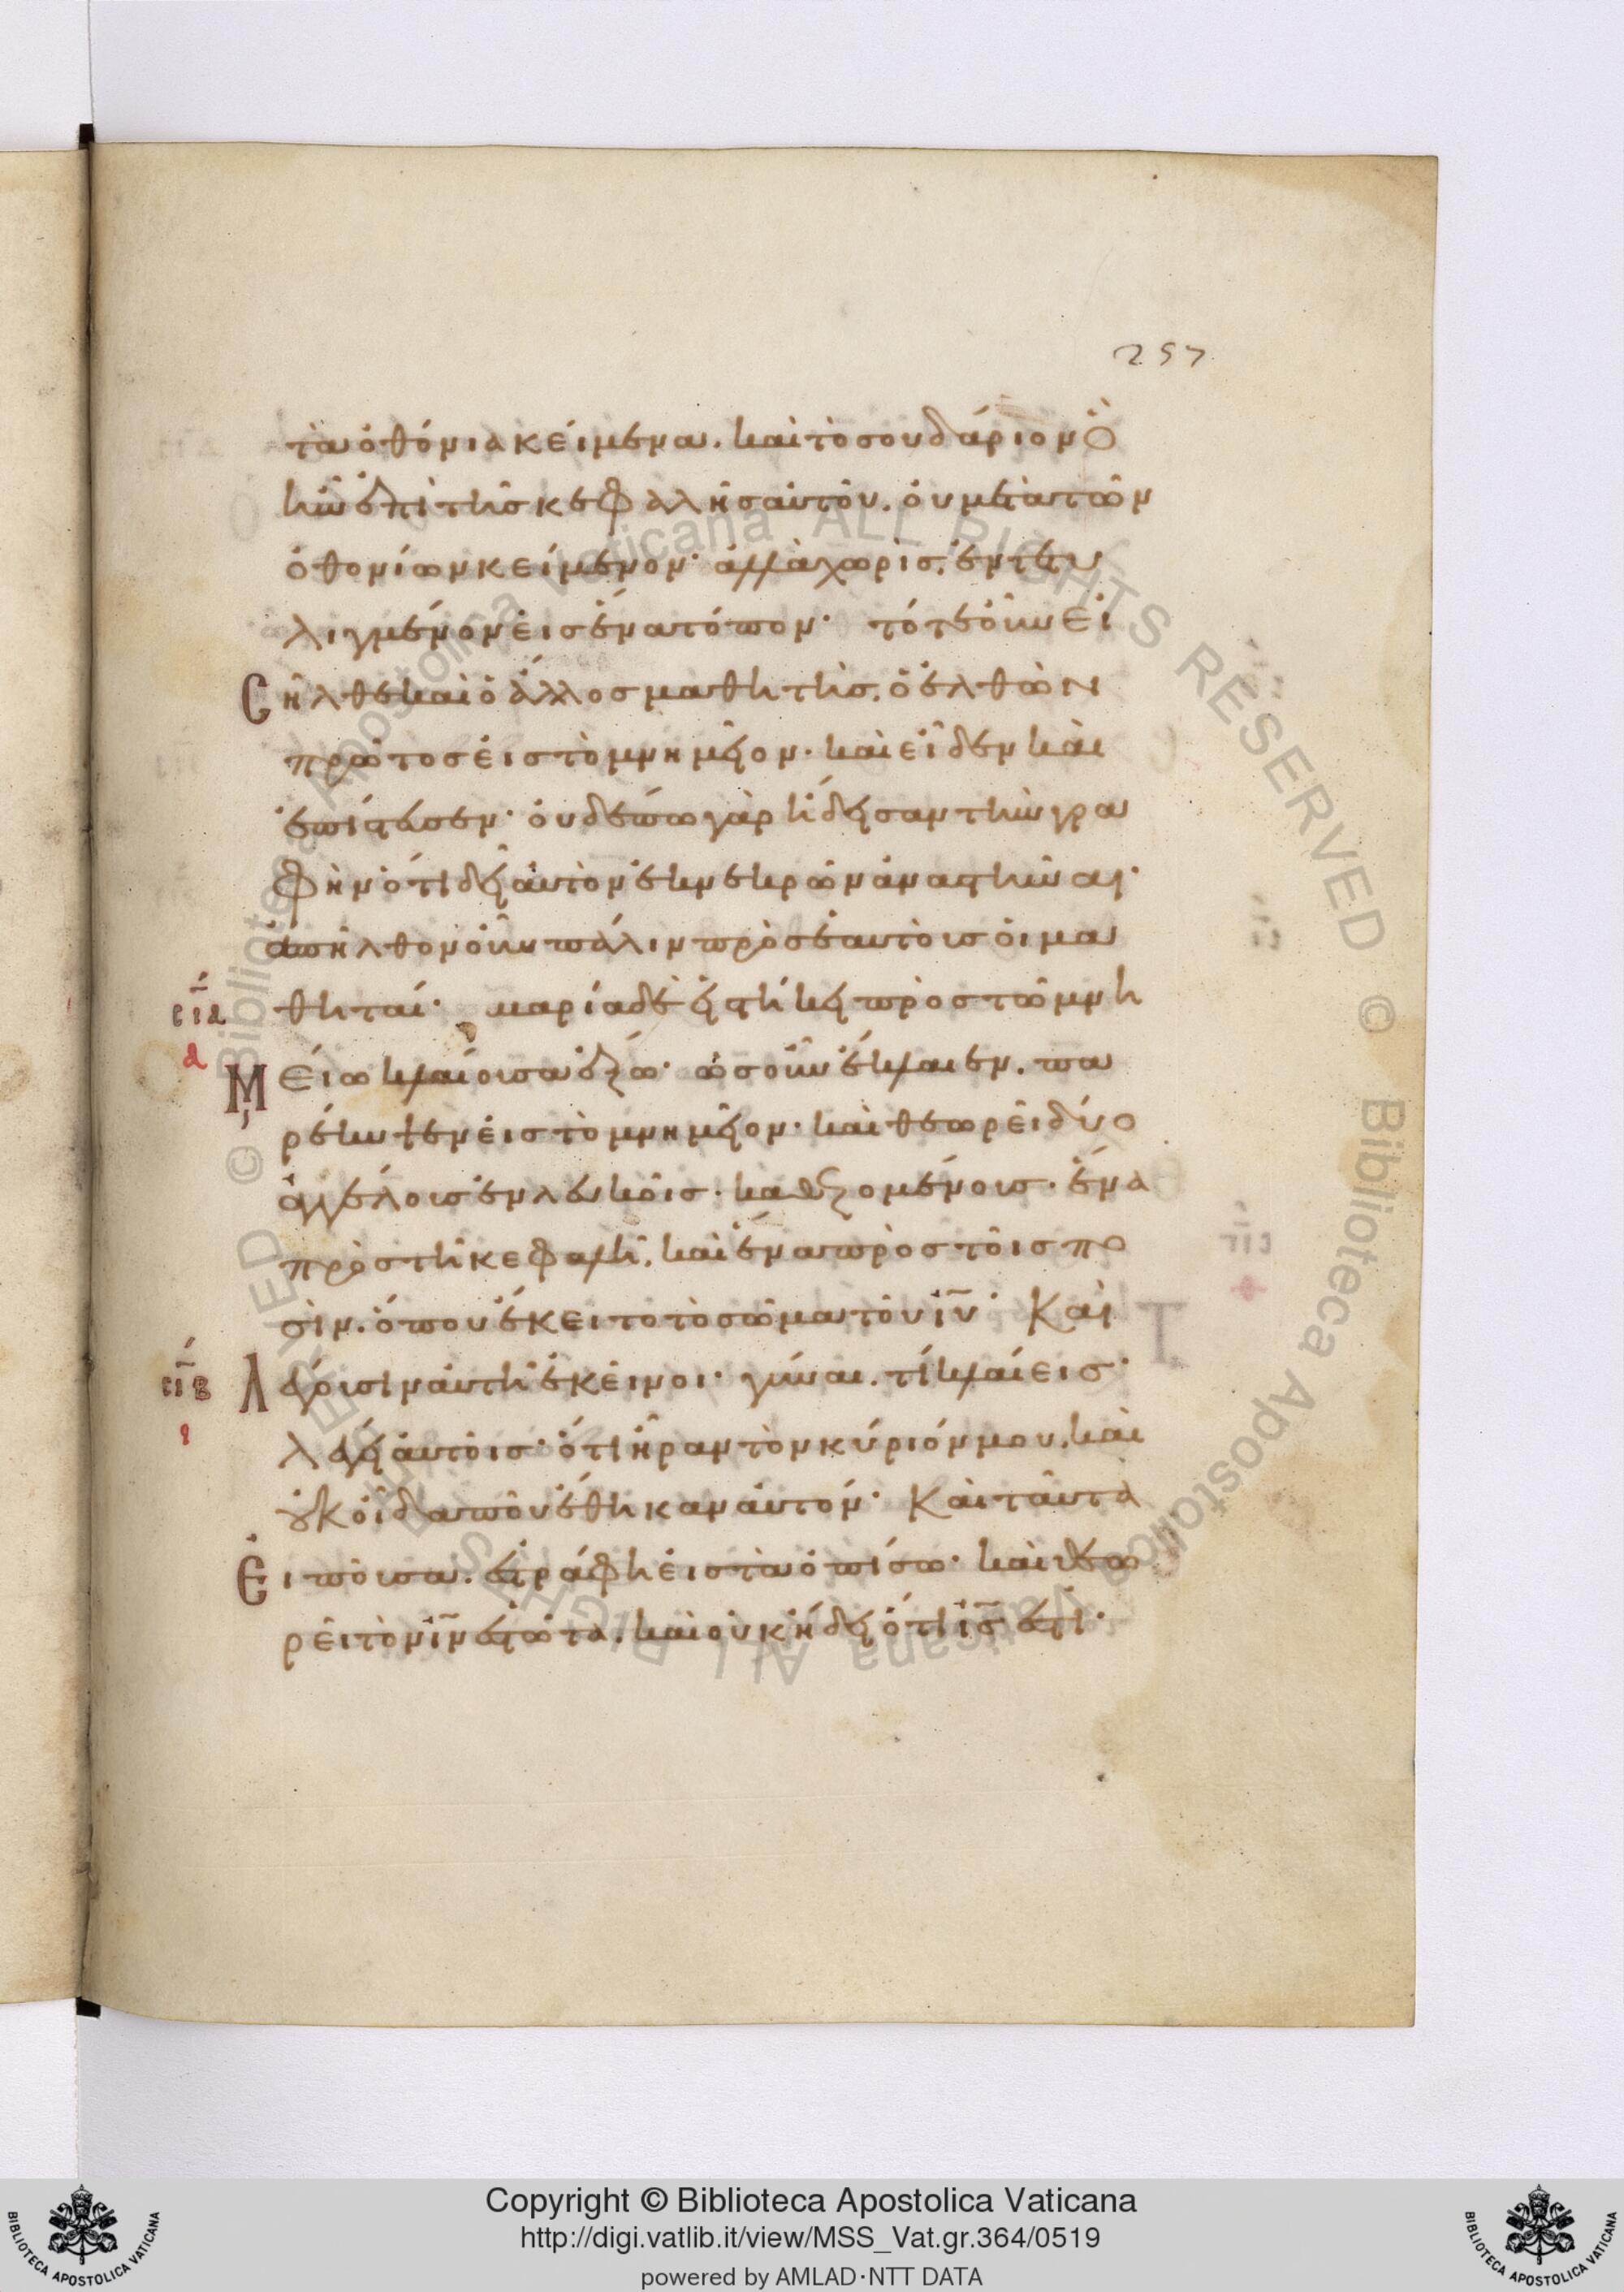 257
τὰ ὀθόνια κείμενα. καὶ τὸ σουδάριον ὃ
ἦν ἐπὶ τῆς κεφαλῆς αὐτοῦ. οὐ μετὰ τῶν
ὀθονίων κείμενον· ἀλλὰ χωρὶς. ἐντετυ
λιγμένον εἰς ἕνα τόπον· τότε οὖν εἰ
σῆλθε καὶ ὁ ἄλλος μαθητὴς. ὁ ἐλθὼν
πρῶτος εἰς τὸ μνημεῖον. καὶ εἶδεν καὶ
ἐπίστευσεν· οὐδέπω γὰρ ἤδεισαν τὴν γρα
φὴν ὅτι δεῖ αὐτὸν ἐκ νεκρῶν ἀναστῆναι·
ἀπῆλθον οὖν πάλιν πρὸς ἑαυτοὺς οἱ μα
σια θηταί· μαρία δὲ εἱστήκει πρὸς τῶ μνη
α
μείω κλαίουσα ἔξω· ὡς οὖν ἔκλαιεν. πα
ρέκυψεν εἰς τὸ μνημεῖον. καὶ θεωρεῖ δύο
ἀγγέλους ἐν λευκοῖς. καθεζομένους. ἕνα
πρὸς τῆ κεφαλῆ. καὶ ἕνα πρὸς τοῖς πο
σὶν. ὅπου ἔκειτο τὸ σῶμα τοῦ ιυ· Καὶ
σιβ λέγουσιν αὐτῆ ἐκεῖνοι· γύναι. τί κλαίεις·
ι
λέγει αὐτοῖς· ὅτι ἦραν τὸν κύριόν μου. καὶ
οὐκ οἶδα ποῦ ἔθηκαν αὐτόν· Καὶ ταῦτα
εἰποῦσα. ἐστράφη εἰς τὰ ὀπίσω· καὶ θεω
ρεῖ τὸν ιν ἑστῶτα. καὶ οὐκ ἤδει ὅτι ις ἐστι·
Copyright © Biblioteca Apostolica Vaticana
http://digi.vatlib.it/view/MSS_Vat.gr.364/0519
powered by AMLAD·NTT DATA
BIBLIOTECA APOSTOLICA VATICANA
BIBLIOTECA APOSTOLICA VATICANA
© Biblioteca Apostolica Vaticana ALL RIGHTS RESERVED
© Biblioteca Apostolica Vaticana ALL RIGHTS RESERVED